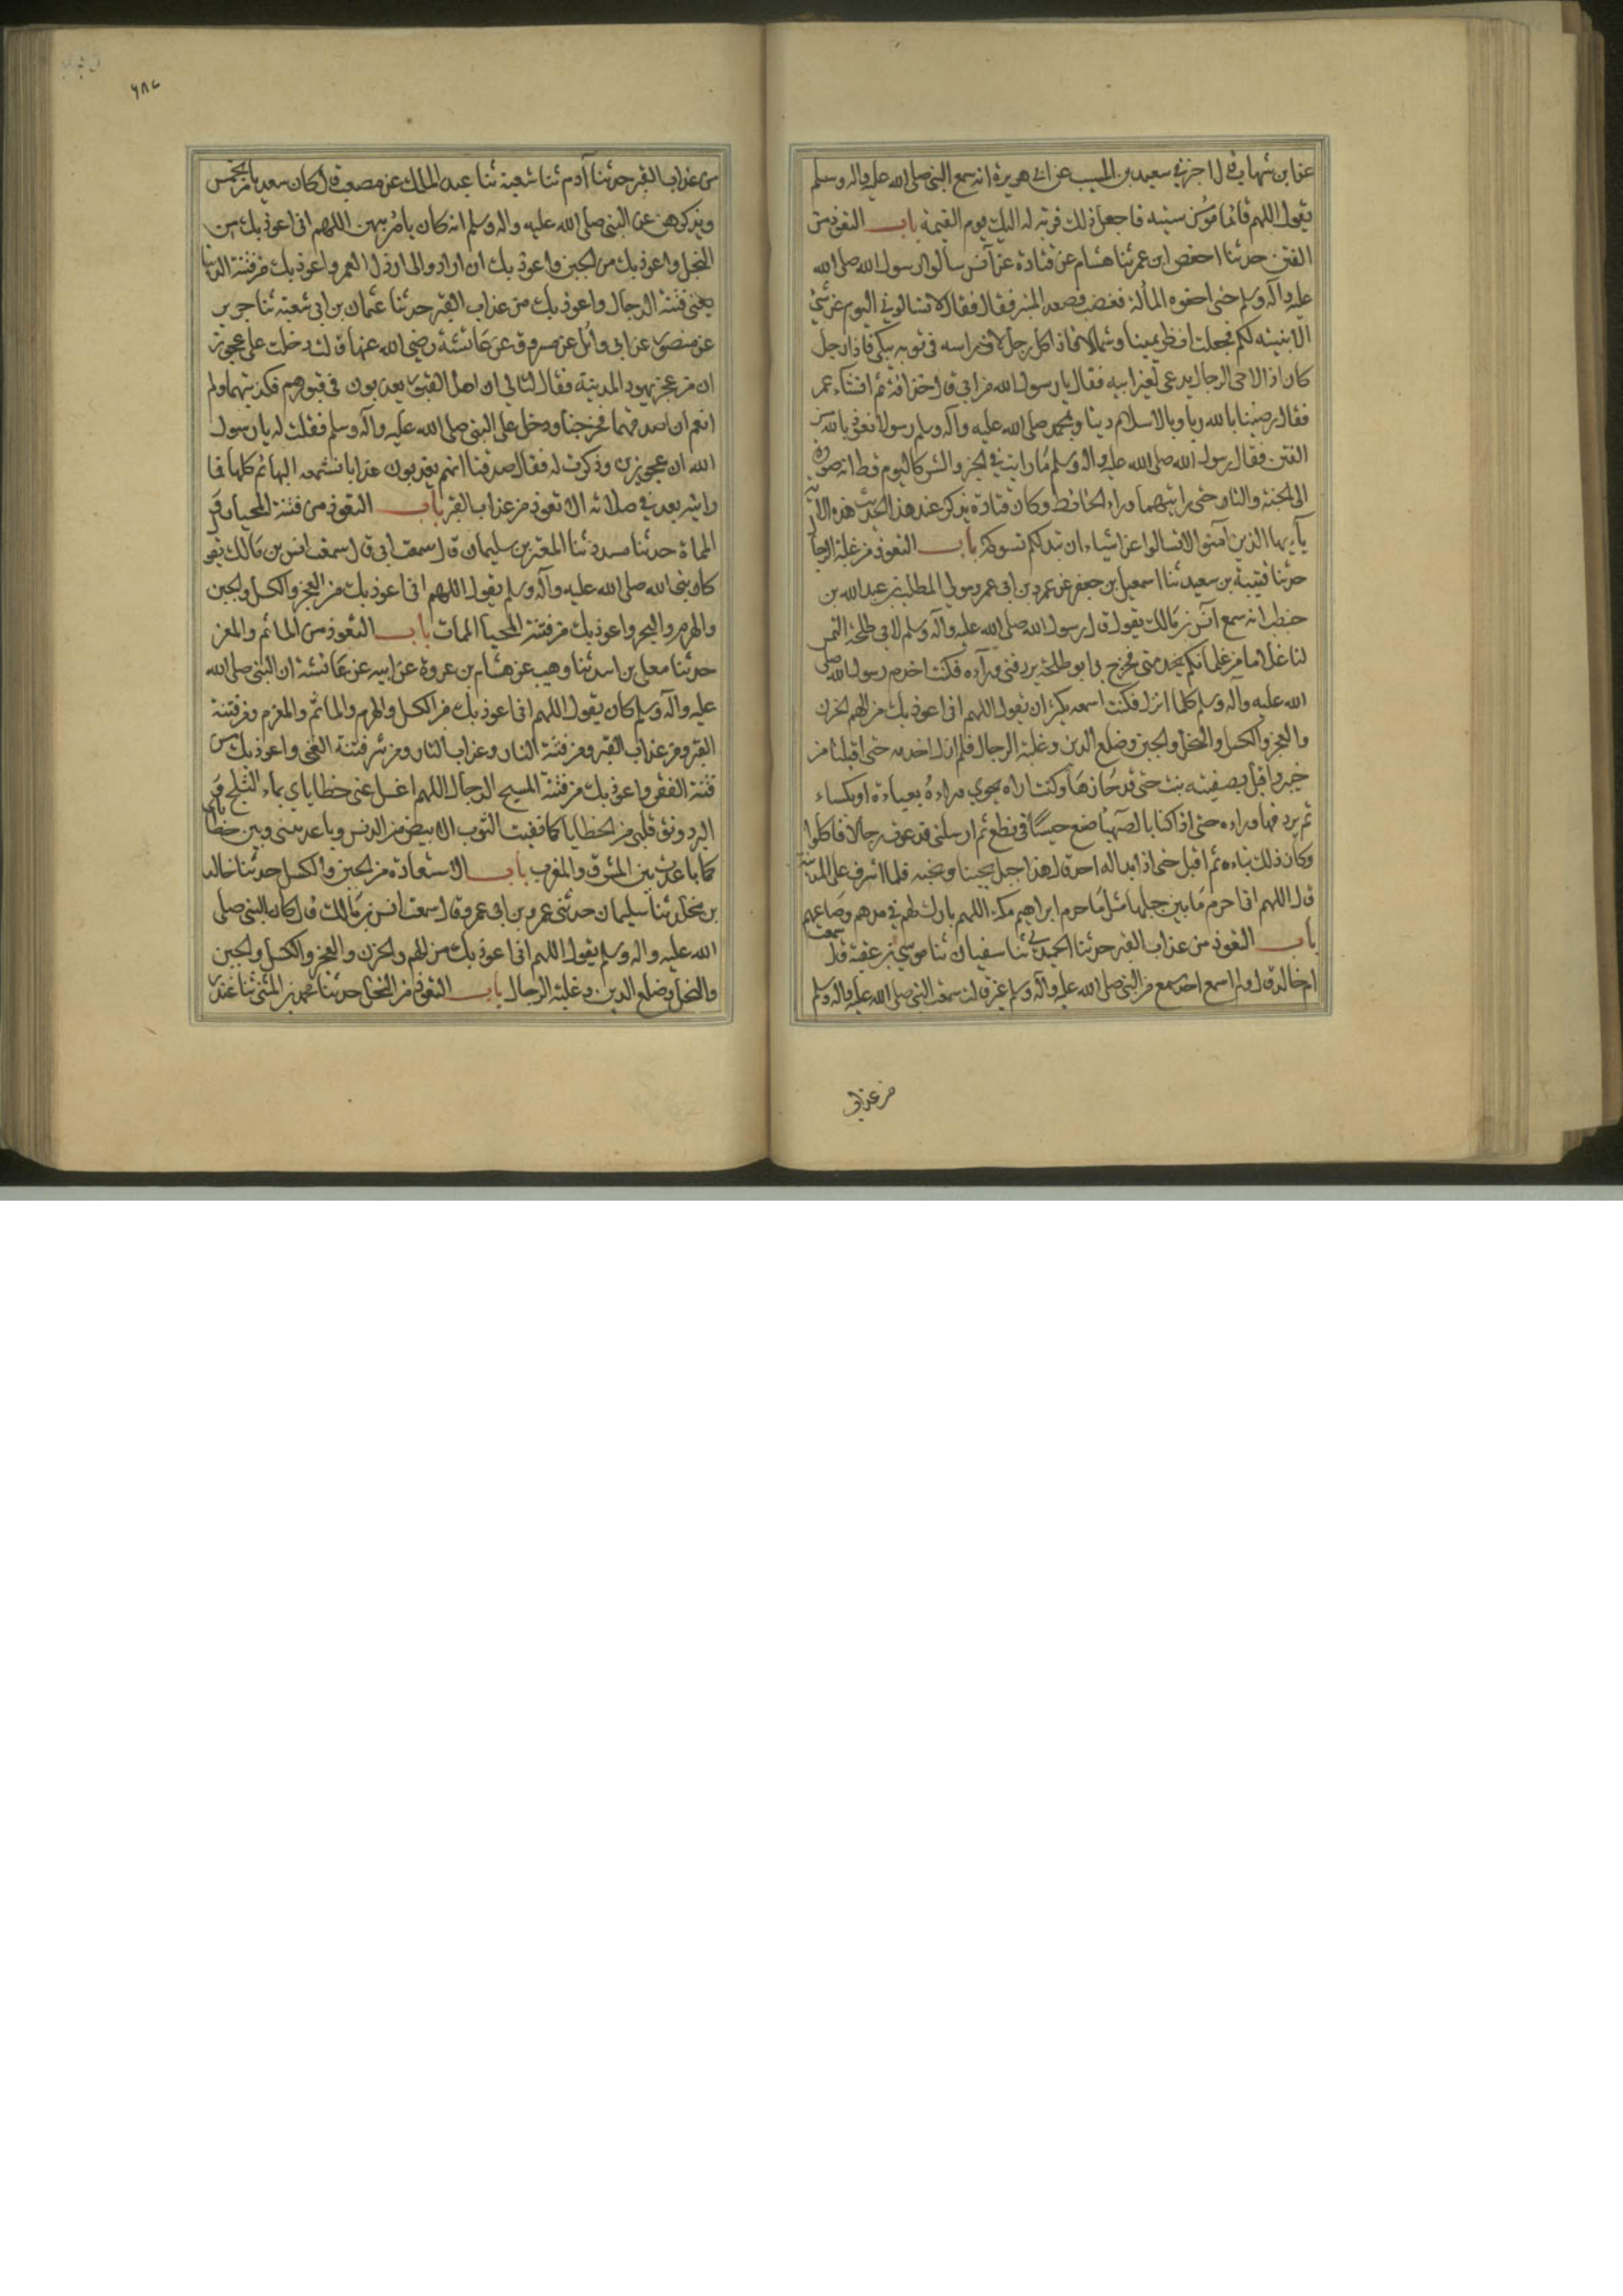 عن ابن شهاب قال اخبرني سعيد بن المسيب عن ابي هريرة انه سمع النبي صلى الله عليه واله وسلم
يقول اللهم فايما مؤمن سببته فاجعل ذلك قربة له اليك يوم القيمة باب التعوذ من
الفتن حدثنا حفص ابن عمر ثنا هشام عن قتادة عن آنس سالوا رسول الله صلى الله
عليه وآله وسلم حتى احفوه المألة فغضب فصعد المنبر فقال فقال لا تسالوني اليوم عن شيء
الا بينته لكم فجعلت انظر يمينا وشمالا فاذا كل رجل لاف راسه في ثوبه يبكي فاذا رجل
كان اذا لاحى الرجال يدعى لغير ابيه فقال يا رسول الله من ابي قال حذافة ثم انشاء عمر
فقال رضينا بالله ربا وبالاسلام دينا وبمحمد صلى الله عليه وآله وسلم رسولا نعوذ بالله من
الفتن فقال رسول الله صلى الله عليه واله وسلم مَا رايت في الخير والشر كاليوم قط انه صورة
الى الجنة والنار حتى رايتهما وراء الحائط وكان قتادة يذكر عند هذا الحديث هذه الآية
يآءيها الذين آمنوا لا تسالوا عن اشياء ان تبد لكم تسوكم باب التعوذ من غلبة الرجال
حدثنا قتيبة بن سعيد ثنا اسمعيل بن جعفر عن عمرو بن ابي عمرو مولى المطلب بن عبد الله بن
حنطب انه سمع آنس بن مَالك يقول قال رسول الله صلى الله عليه وآله وسلم لابي طلحة التمس
لنا غلاما من غلمانكم يخدمني فخرج بي ابو طلحة يردفني ورآءه فكنت اخدم رسول الله صلى
الله عليه وآله وسلم كلما انزل فكنت اسمعه يكثر ان يقول اللهم اني اعوذ بك من الهم الحزن
والعجز والكسل والبخل والجبن وضلع الدين وغلبة الرجال فلم ازل اخدمه حتى اقبلنا من
خيبر واقبل بصفية بنت حتى قد حَازهَا وكنت اراه يحوي وراءهُ بعباءة او بكساء
ثم يردفها وراءه حتى اذا كنا بالصهبا صنع حيسًا في نطع ثم ارسلني فدعوت رجالا فاكلوا
وكان ذلك بناءه ثم اقبل حتى اذا بدا له احد قال هذا جبل يحبنا ونحبه فلما اشرف على المدينة
قال اللهم اني احرم مَا بين جبليها مثل مَا حرم ابراهيم مكة اللهم بارك لهم في مدهم وصَاعهم
باب التعوذ من عذاب القبر حدثنا الحميدي ثنا سفيان ثنا موسى بن عقبة قال سمعت
ام خالد قال ولم اسمع احدا سمع من النبي صلى الله عليه وآله وسلم غيرها قالت سمعت النبي صلى الله عليه واله وسلم
من عذاب
من عذاب القبر حدثنا آدم ثنا شعبة ثنا عبد الملك عن مصعب قال كان سعد يامر بخمس
ويذكرهن عن النبي صلى الله عليه واله وسلم انه كان يامر بهن اللهم اني اعوذ بك من
البخل واعوذ بك من الجبن واعوذ بك ان ارد والى ارذل العمر واعوذ بك من فتنة الدنيا
يعني فتنة الدجال واعوذ بك من عذاب القبر حدثنا عثمان بن ابي شعبة ثنا جرير
عن منصور عن ابي وائل عن مسروق عن عَائشة رضي الله عنها قالت دخلت علي عجوز
ان من عجز يهود المدينة فقال لتا لي ان اهل القبور يعذبون في قبورهم فكذبتهما ولم
انعم ان اصدقهما فخرجنا ودخل على النبي صلى الله عليه وآله وسلم فقلت له يا رسول
الله ان عجوزين وذكرت له فقال صدقتا انهم يعذبون عذابا تسمعه البهائم كلها فما
رايته بعد في صلاته الا تعوذ من عذاب القبر باب التعوذ من فتنة المحيا و من
المماة حدثنا مسدد ثنا المعتمر بن سليمان قال سمعت ابي قال سمعت انس بن مَالك يقول
كان نبي الله صلى الله عليه وآله وسلم يقول اللهم اني اعوذ بك من العجز والكسل والجبن
والهرم والبخر واعوذ بك من فتنة المحيا الممات باب التعوذ من الماثم والمغرم
حدثنا معلى بن اسد ثنا وهيب عن هشام بن عروة عن ابيه عن عَائشة ان النبي صلى الله
عليه وآله وسلم كان يقول اللهم اني اعوذ بك من الكسل والهرم والماثم والمغرم ومن فتنة
القبر ومن عذاب القبر ومن فتنة النار وعذاب النار ومن شر فتنة الغنى واعوذ بك من
فتنة الفقر واعوذ بك من فتنة المسيح الدجال اللهم اغسل عني خطاياي بماء الثلج و
البرد ونق قلبي من الخطايا كما نقيت الثوب الابيض من الدنس وباعد بيني وبين خطاياي
كما باعدت بين المشرق والمغرب باب الاستعاذة من الجبن والكسل حدثنا خالد
بن مخلد ثنا سليمان حدثني عمرو بن ابي عمرو قال سمعت انس بن مَالك قال كان النبي صلى
الله عليه واله وسلم يقول اللهم اني اعوذ بك من الهم والحزن والعجز والكسل والجبن
والبخل وضلع الدين وغلبة الرجال باب التعوذ من البخل حدثنا محمد بن المثنى ثنا غندر